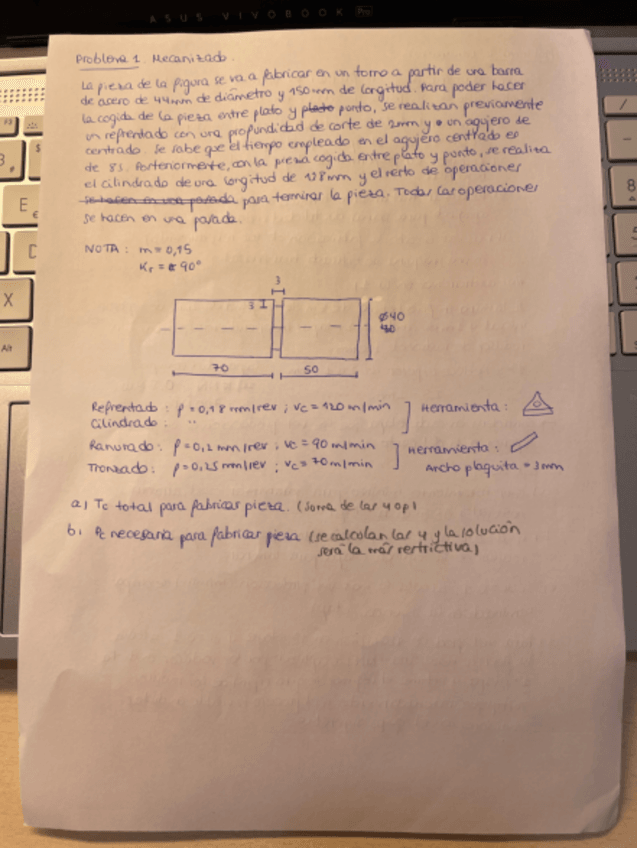 ASUS VIVOBOOK Pro
Problema 1 Mecanizado.
La pieza de la figura se va a fabricar en un torno a partir de una barra
de acero de 44mm de diámetro y 150mm de longitud. Para poder hacer
la cogida de la pieza entre plato y plato punto, se realizan previamente
un refrentado con una profundidad de corte de 2mm y un agujero de
centrado. Se sabe que el tiempo empleado en el agujero centrado es
de 8s. Posteriormente, con la pieza cogida entre plato y punto, se realiza
el cilindrado de una longitud de 128mm y el resto de operaciones
se hacen en una pasada para terminar la pieza. Todas las operaciones
se hacen en una pasada.
NOTA: m = 0,15
Kr = 90°
3
3
Ø40
70
50
Refrentado: f = 0,18 mm/rev; vc = 120 m/min
Herramienta:
Cilindrado: ''
Ranurado: f = 0,2 mm/rev; vc = 90 m/min
Herramienta:
Tronzado: f = 0,25 mm/rev; vc = 70 m/min
Ancho plaquita = 3mm
a) Tc total para fabricar pieza. (Suma de las 4 op)
b) Pc necesaria para fabricar pieza (se calculan las 4 y la solución
será la más restrictiva)
X
Alt
E
€
8